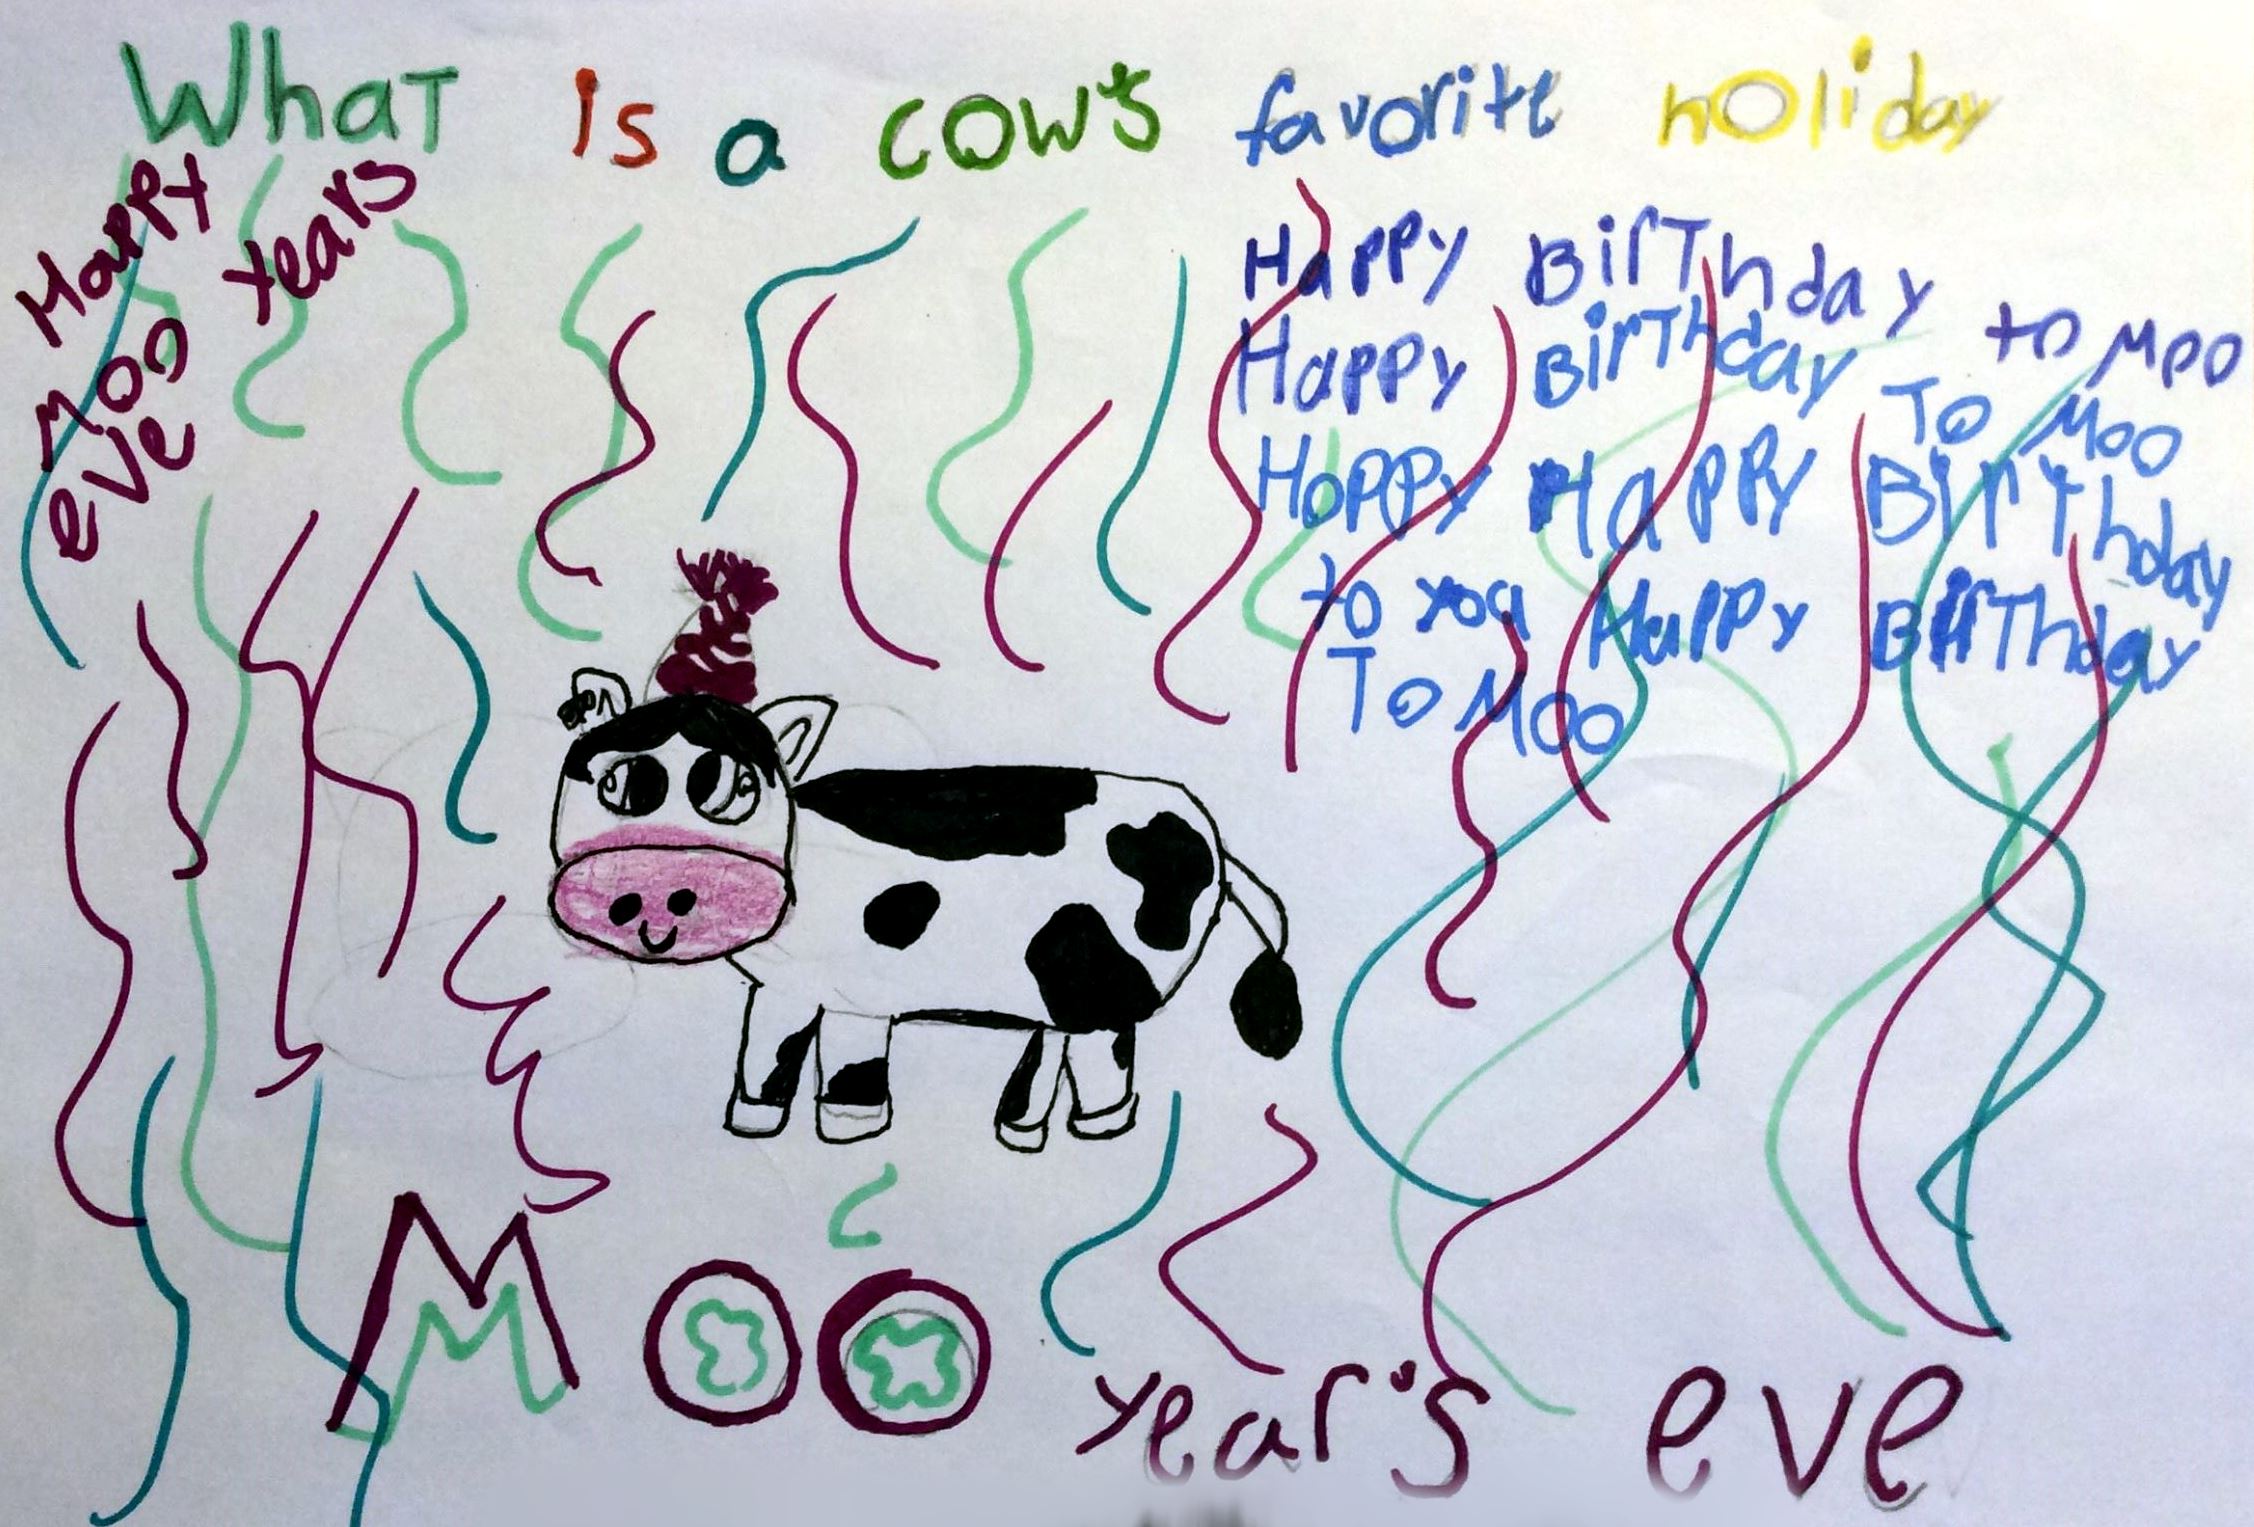 What is a cow's favorite holiday
Happy years
Moo
eve
Happy Birthday to Moo
Happy Birthday To Moo
Happy Happy Birthday
to you Happy Birthday
To Moo
Moo year's eve